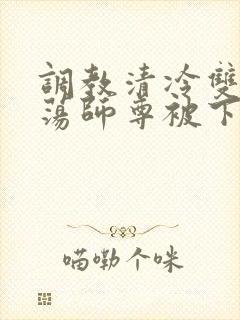 調教清冷雙
蕩師尊被下
喵嘞个咪